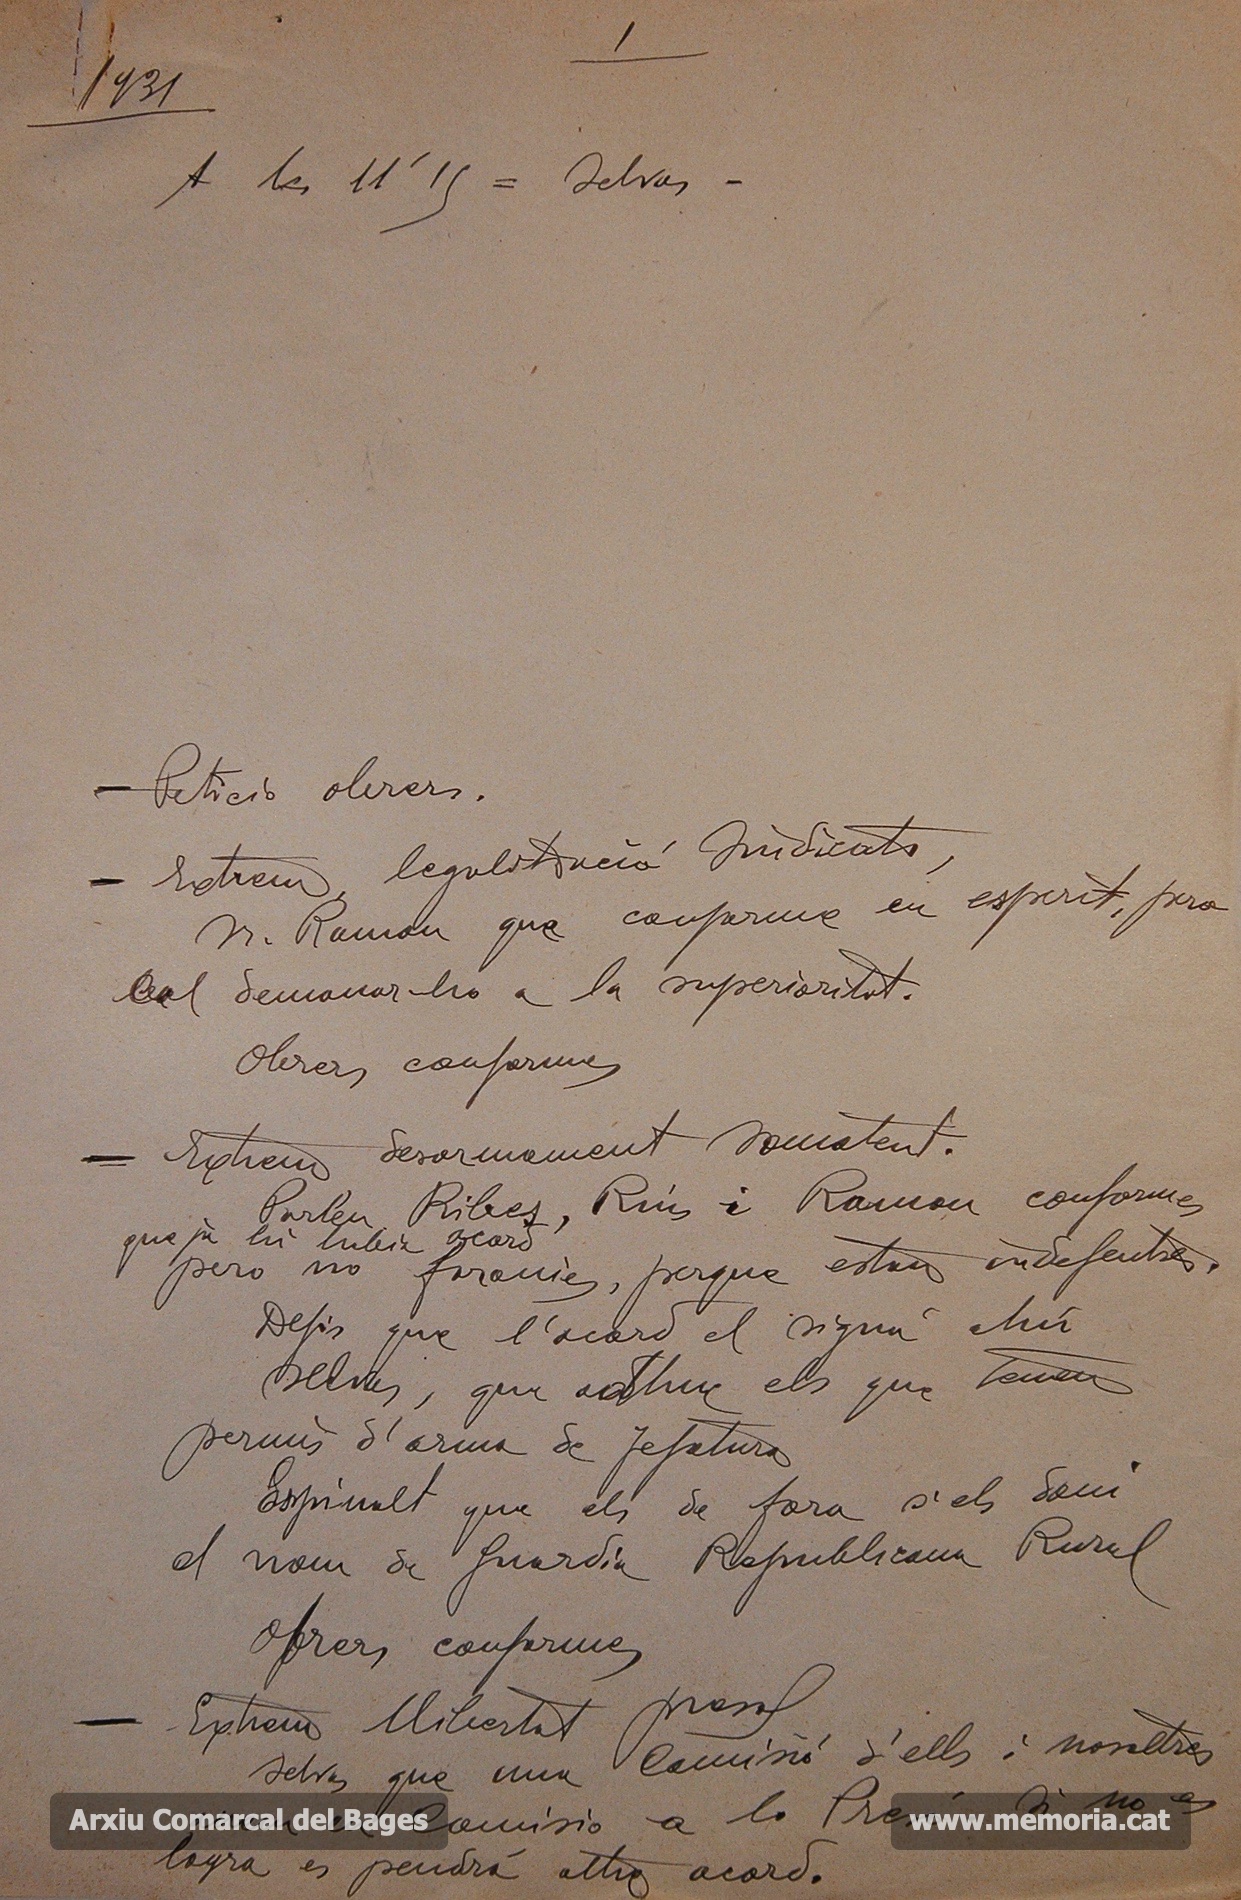 1
1931
A les 11'15 = Selvas -
- Petició obrers.
- Extrem, legalització Sindicats,
Sr. Ramon que conforme en esperit, pero
Cal demanar-ho a la superioritat.
Obrers conformes
- Extrem desarmament somatent.
Parlen Ribes, Rius i Ramon conformes
que ja hi habia acord
pero no foranies, perque estan indefenses.
que l'acord el signá ahir
Selvas, que adhuc els que tenen
permis d'arma de Jefatura
Espinalt que els de fora s'els doni
el nom de Guardia Republicana Rural
Obrers conformes
- Extrem Llibertat presos
Selvas que una Comisió d'ells i nosaltres
en Comisio a la Presó. Si no es
logra es pendrá altre acord.
Arxiu Comarcal del Bages
www.memoria.cat